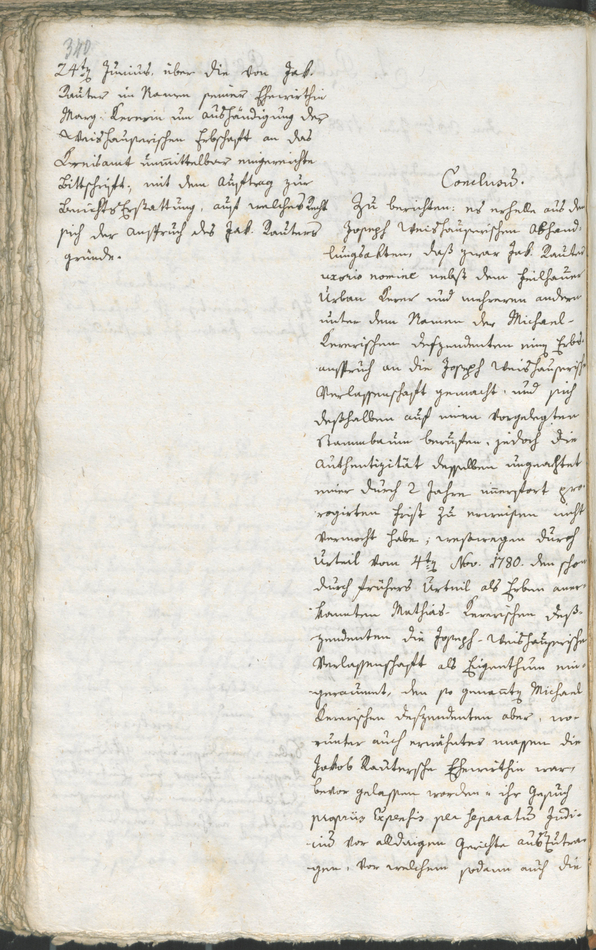 340
24tg Junius über die von Jak.
Rauter im Namen seiner Ehewirthin
Marg. Kererin um aushändigung der
Weishäuserischen Erbschaft an das
Kreisamt unmittelbar eingereichte
Bittschrift, mit dem Auftrag zur
Berichts Erstattung, auf welches Recht
sich der Anspruch des Jak. Rauters
gründe.
Conclusum.
Zu berichten: es erhelle aus den
Joseph Weishäuserischen Abhand-
lungsakten, daß zwar Jak. Rauter
uxorio nomine nebst dem Heilhauer
Urban Kerer und mehreren andern
unter dem Namen der Michael-
Kererischen Deszendenten einen Erbs-
anspruch an die Joseph Weishäuserische
Verlassenschaft gemacht, und sich
desthalben auf einen vorgelegten
Stammbaum berufen, jedoch die
Authentizität desselben ungeachtet
einer durch 2 Jahre immerfort pro-
rogirten Frist zu erweisen nicht
vermocht habe; weswegen durch
Urteil vom 4tg Nov. 1780. den schon
durch frühers Urteil als Erben aner-
kannten Mathias-Kererischen Des-
zendenten die Joseph-Weishäuserische
Verlassenschaft als Eigenthum ein-
geraumt, den so genanten Michael
Kererischen Deszendenten aber, wo-
runter auch ernähnter massen die
Jakob Rautersche Ehewirthin war,
bevor gelassen worden: ihr Gesuch
propriis Expensis per separatum Judi-
cium vor alldaigen Gerichte auszutra-
gen, vor welchem sodann auch die